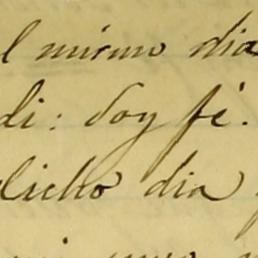 l mismo dia
di: doy fé.
dicho dia